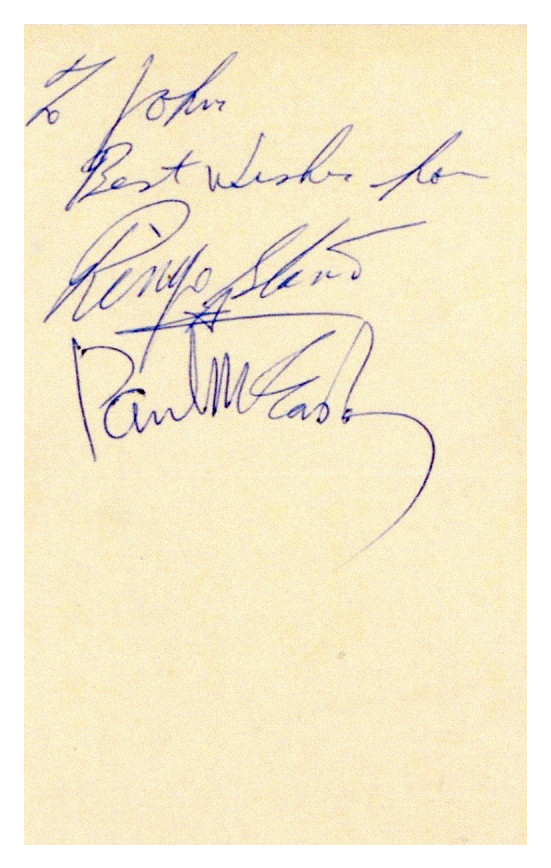 To John
Best Wishes from
Ringo Starr
Paul McCartney